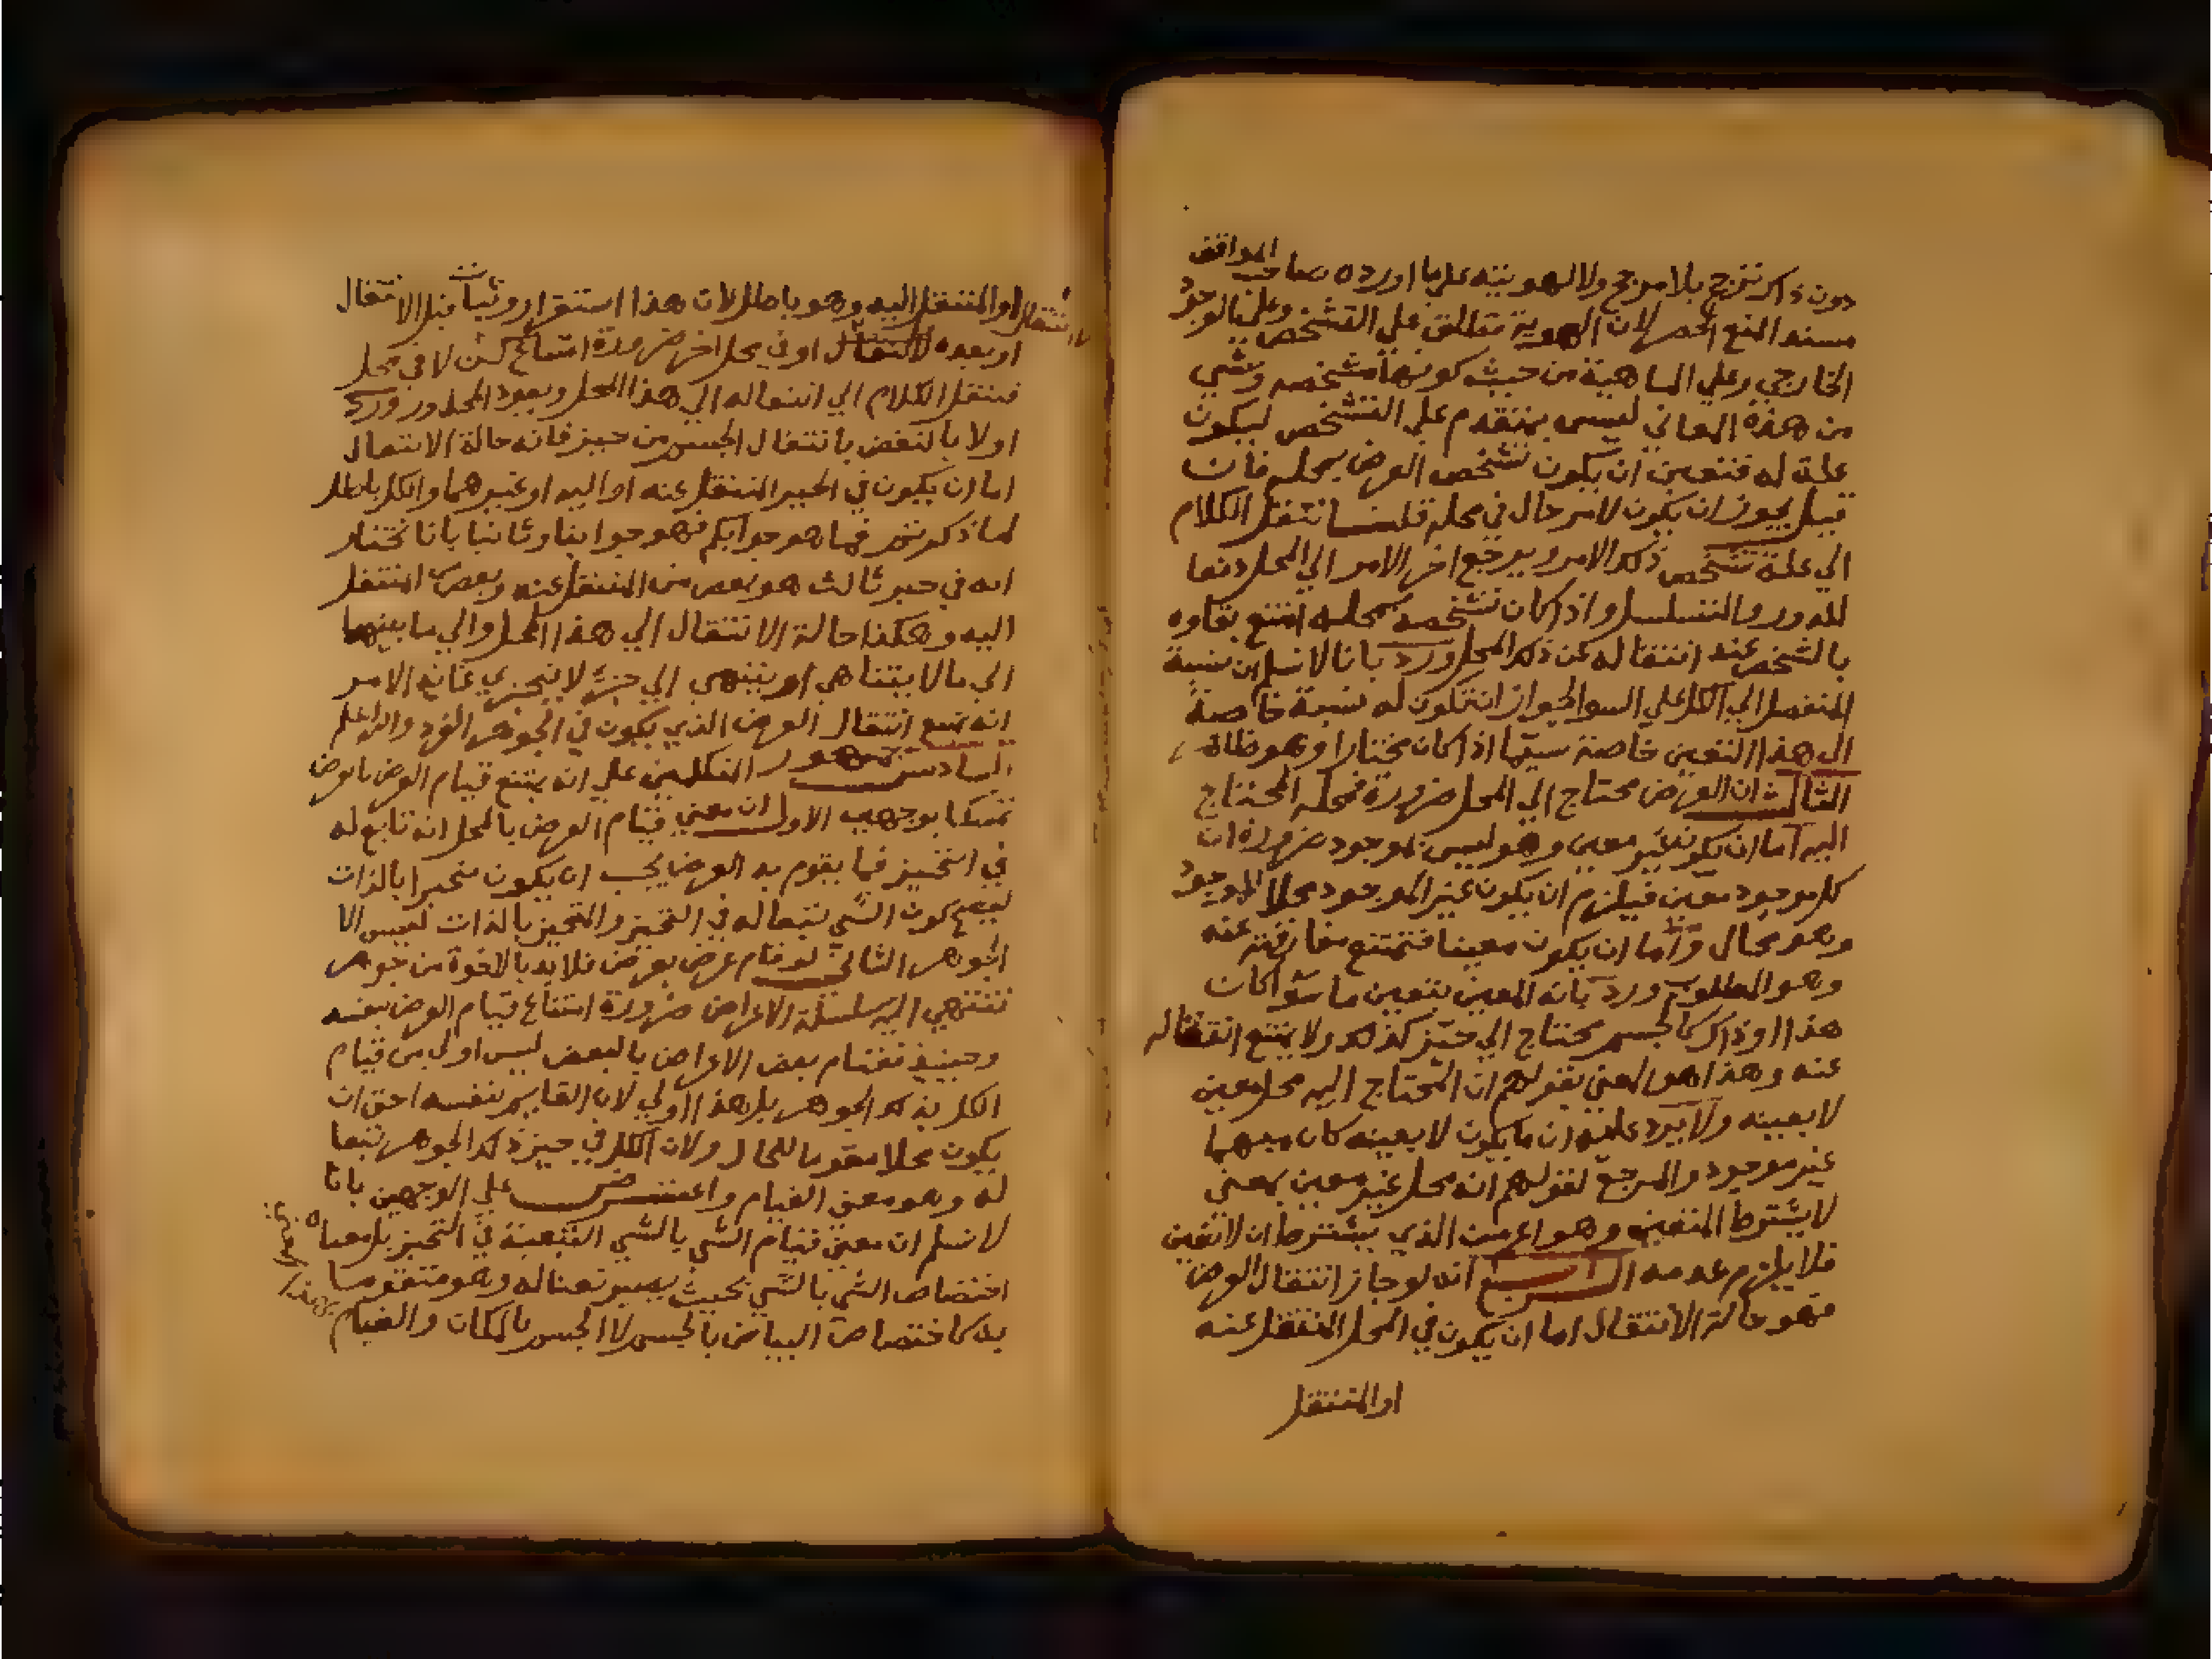 دون ذاك ترجح بلا مرجح ولا لهويته على ما اورده صاحب المواقف
مسند المنع الحصر لان الهوية تطلق علي التشخص وعلي الوجود
الخارجي وعلي الماهية من حيث كونها مشخصه وشي
من هذه المعاني ليس بمتقدم علي التشخص ليكون
علة له فتعين ان يكون تشخص العرض بمحله فان
قيل يجوز ان يكون لامر حال في محله قلنا ننقل الكلام
الي علة تشخص ذلك الامر ويرجع اخر الامر الي المحل دفعا
للدور والتسلسل واذا كان تشخصه بمحله امتنع بقاوه
بالشخص عند انتقاله عن ذلك المحل ورد بانا لا نسلم ان نسبة
المنفصل الي الكل علي السوا لجواز ان تكون له نسبة خاصة
الي هذا التعين خاصة سيما اذا كان مختارا وهو ظاهر
الثالث ان العرض محتاج الي المحل ضرورة فمحله المحتاج
اليه اما ان يكون غير معين وهو ليس بموجود ضرورة ان
كل موجود معين فيلزم ان يكون غير الموجود محلا للموجود
وهو محال واما ان يكون معينا فتمتنع مفارقته عنه
وهو المطلوب ورد بانه المعين بتعين ما سوا كان
هذا او ذاك كالجسم محتاج الي حيز كذلك ولا يمتنع انتقاله
عنه وهذا هو المعني بقولهم ان المحتاج اليه محل معين
لا بعينه ولا يرد عليه ان ما يكون لا بعينه كان مبهما
غير موجود والمرجع لقولهم انه محل غير معين بمعني
لا يشترط التعين وهو اعم من الذي يشترط ان لا تعين
فلا يلزم عدمه الرابع انه لو جاز انتقال العرض
فهو حالة الانتقال اما ان يكون في المحل المنتقل عنه
او المنتقل
او المنتقل اليه وهو باطل لان هذا استقرار وثبات قبل الانتقال
او بعده لا انتقال او في محل اخر ضرورة امتناع كونه لا في محل
فننقل الكلام الي انتقاله الي هذا المحل ويعود المحذور ورد
اولا بالنقض بانتقال الجسم من حيز فانه حالة الانتقال
اما ان يكون في الحيز المنتقل عنه او اليه او غيرهما والكل باطل
لما ذكرتم فما هو جوابكم فهو جوابنا وثانيا بانا نختار
انه في حيز ثالث هو بعض من المنتقل عنه وبعض المنتقل
اليه وهكذا حالة الانتقال الي هذا المحل والي ما بينهما
الي ما لا يتناهي او ينتهي الي جزء لا يتجزي غاية الامر
انه يمتنع انتقال العرض الذي يكون في الجوهر الفرد والله اعلم
السادس جمهور المتكلمين علي انه يمتنع قيام العرض بالعرض
تمسكا بوجهين الاول ان معني قيام العرض بالمحل انه تابع له
في التحيز فما يقوم به العرض يجب ان يكون متحيزا بالذات
ليصح كون الشي تبعا له في التحيز والمتحيز بالذات ليس الا
الجوهر الثاني لو قام عرض بعرض فلا بد بالاخرة من جوهر
تنتهي اليه سلسلة الاعراض ضرورة امتناع قيام العرض بنفسه
وحينيذ فقيام بعض الاعراض بالبعض ليس اولي من قيام
الكل بذلك الجوهر بل هذا اولي لان القايم بنفسه احق ان
يكون محلا مقوما للحال ولان الكل في حيز ذلك الجوهر تبعا
له وهو معني القيام واعترض علي الوجهين بانا
لا نسلم ان معني قيام الشي بالشي التبعية في التحيز بل معناه
اختصاص الشي بالشي بحيث يصير نعتا له وهو منعوتا
به كاختصاص البياض بالجسم لا الجسم بالمكان والقيام
بهذا المعني